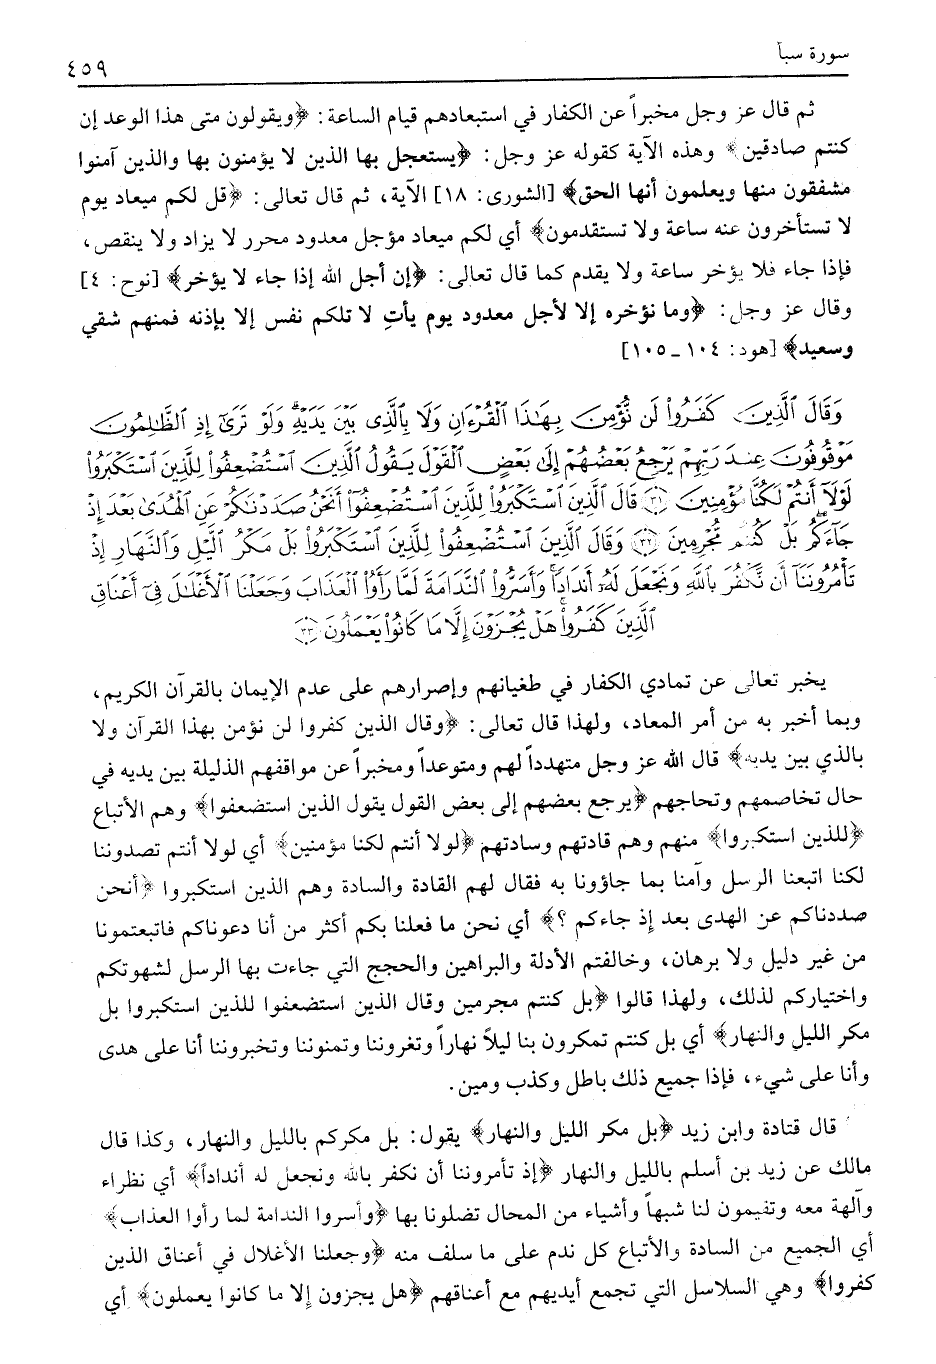 سورة سبأ
٤٥٩
ثم قال عز وجل مخبراً عن الكفار في استبعادهم قيام الساعة: ﴿ويقولون متى هذا الوعد إن
كنتم صادقين﴾ وهذه الآية كقوله عز وجل: ﴿يستعجل بها الذين لا يؤمنون بها والذين آمنوا
مشفقون منها ويعلمون أنها الحق﴾ [الشورى: ١٨] الآية، ثم قال تعالى: ﴿قل لكم ميعاد يوم
لا تستأخرون عنه ساعة ولا تستقدمون﴾ أي لكم ميعاد مؤجل معدود محرر لا يزاد ولا ينقص،
فإذا جاء فلا يؤخر ساعة ولا يقدم كما قال تعالى: ﴿إن أجل الله إذا جاء لا يؤخر﴾ [نوح: ٤]
وقال عز وجل: ﴿وما نؤخره إلا لأجل معدود يوم يأتِ لا تلكم نفس إلا بإذنه فمنهم شقي
وسعيد﴾ [هود: ١٠٤ ـ ١٠٥]
وَقَالَ ٱلَّذِينَ كَفَرُوا۟ لَن نُّؤْمِنَ بِهَٰذَا ٱلْقُرْءَانِ وَلَا بِٱلَّذِى بَيْنَ يَدَيْهِ ۗ وَلَوْ تَرَىٰٓ إِذِ ٱلظَّٰلِمُونَ
مَوْقُوفُونَ عِندَ رَبِّهِمْ يَرْجِعُ بَعْضُهُمْ إِلَىٰ بَعْضٍ ٱلْقَوْلَ يَقُولُ ٱلَّذِينَ ٱسْتُضْعِفُوا۟ لِلَّذِينَ ٱسْتَكْبَرُوا۟
لَوْلَآ أَنتُمْ لَكُنَّا مُؤْمِنِينَ ﴿٣١﴾ قَالَ ٱلَّذِينَ ٱسْتَكْبَرُوا۟ لِلَّذِينَ ٱسْتُضْعِفُوٓا۟ أَنَحْنُ صَدَدْنَٰكُمْ عَنِ ٱلْهُدَىٰ بَعْدَ إِذْ
جَآءَكُم ۖ بَلْ كُنتُم مُّجْرِمِينَ ﴿٣٢﴾ وَقَالَ ٱلَّذِينَ ٱسْتُضْعِفُوا۟ لِلَّذِينَ ٱسْتَكْبَرُوا۟ بَلْ مَكْرُ ٱلَّيْلِ وَٱلنَّهَارِ إِذْ
تَأْمُرُونَنَآ أَن نَّكْفُرَ بِٱللَّهِ وَنَجْعَلَ لَهُۥٓ أَندَادًا ۚ وَأَسَرُّوا۟ ٱلنَّدَامَةَ لَمَّا رَأَوُا۟ ٱلْعَذَابَ وَجَعَلْنَا ٱلْأَغْلَٰلَ فِىٓ أَعْنَاقِ
ٱلَّذِينَ كَفَرُوا۟ ۚ هَلْ يُجْزَوْنَ إِلَّا مَا كَانُوا۟ يَعْمَلُونَ ﴿٣٣﴾
يخبر تعالى عن تمادي الكفار في طغيانهم وإصرارهم على عدم الإيمان بالقرآن الكريم،
وبما أخبر به من أمر المعاد، ولهذا قال تعالى: ﴿وقال الذين كفروا لن نؤمن بهذا القرآن ولا
بالذي بين يديه﴾ قال الله عز وجل متهدداً لهم ومتوعداً ومخبراً عن مواقفهم الذليلة بين يديه في
حال تخاصمهم وتحاجهم ﴿يرجع بعضهم إلى بعض القول يقول الذين استضعفوا﴾ وهم الأتباع
﴿للذين استكبروا﴾ منهم وهم قادتهم وسادتهم ﴿لولا أنتم لكنا مؤمنين﴾ أي لولا أنتم تصدوننا
لكنا اتبعنا الرسل وآمنا بما جاؤونا به فقال لهم القادة والسادة وهم الذين استكبروا ﴿أنحن
صددناكم عن الهدى بعد إذ جاءكم ؟﴾ أي نحن ما فعلنا بكم أكثر من أنا دعوناكم فاتبعتمونا
من غير دليل ولا برهان، وخالفتم الأدلة والبراهين والحجج التي جاءت بها الرسل لشهوتكم
واختياركم لذلك، ولهذا قالوا ﴿بل كنتم مجرمين وقال الذين استضعفوا للذين استكبروا بل
مكر الليل والنهار﴾ أي بل كنتم تمكرون بنا ليلاً نهاراً وتغروننا وتمنوننا وتخبروننا أنا على هدى
وأنا على شيء، فإذا جميع ذلك باطل وكذب ومين.
قال قتادة وابن زيد ﴿بل مكر الليل والنهار﴾ يقول: بل مكركم بالليل والنهار، وكذا قال
مالك عن زيد بن أسلم بالليل والنهار ﴿إذ تأمروننا أن نكفر بالله ونجعل له أنداداً﴾ أي نظراء
وآلهة معه وتقيمون لنا شبهاً وأشياء من المحال تضلونا بها ﴿وأسروا الندامة لما رأوا العذاب﴾
أي الجميع من السادة والأتباع كل ندم على ما سلف منه ﴿وجعلنا الأغلال في أعناق الذين
كفروا﴾ وهي السلاسل التي تجمع أيديهم مع أعناقهم ﴿هل يجزون إلا ما كانوا يعملون﴾ أي